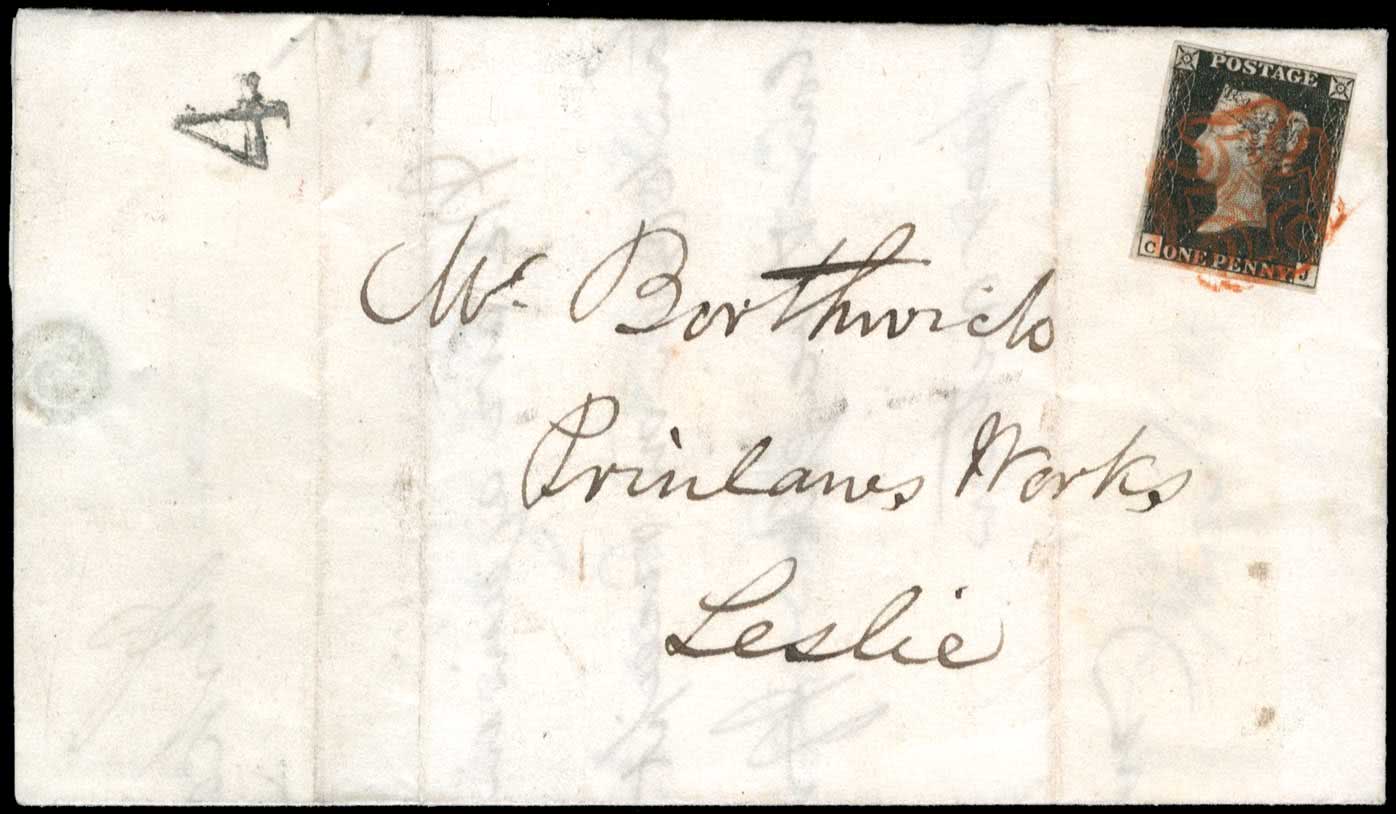 4
POSTAGE
C ONE PENNY J
Mr. Borthwick
Prinlaws Works
Leslie